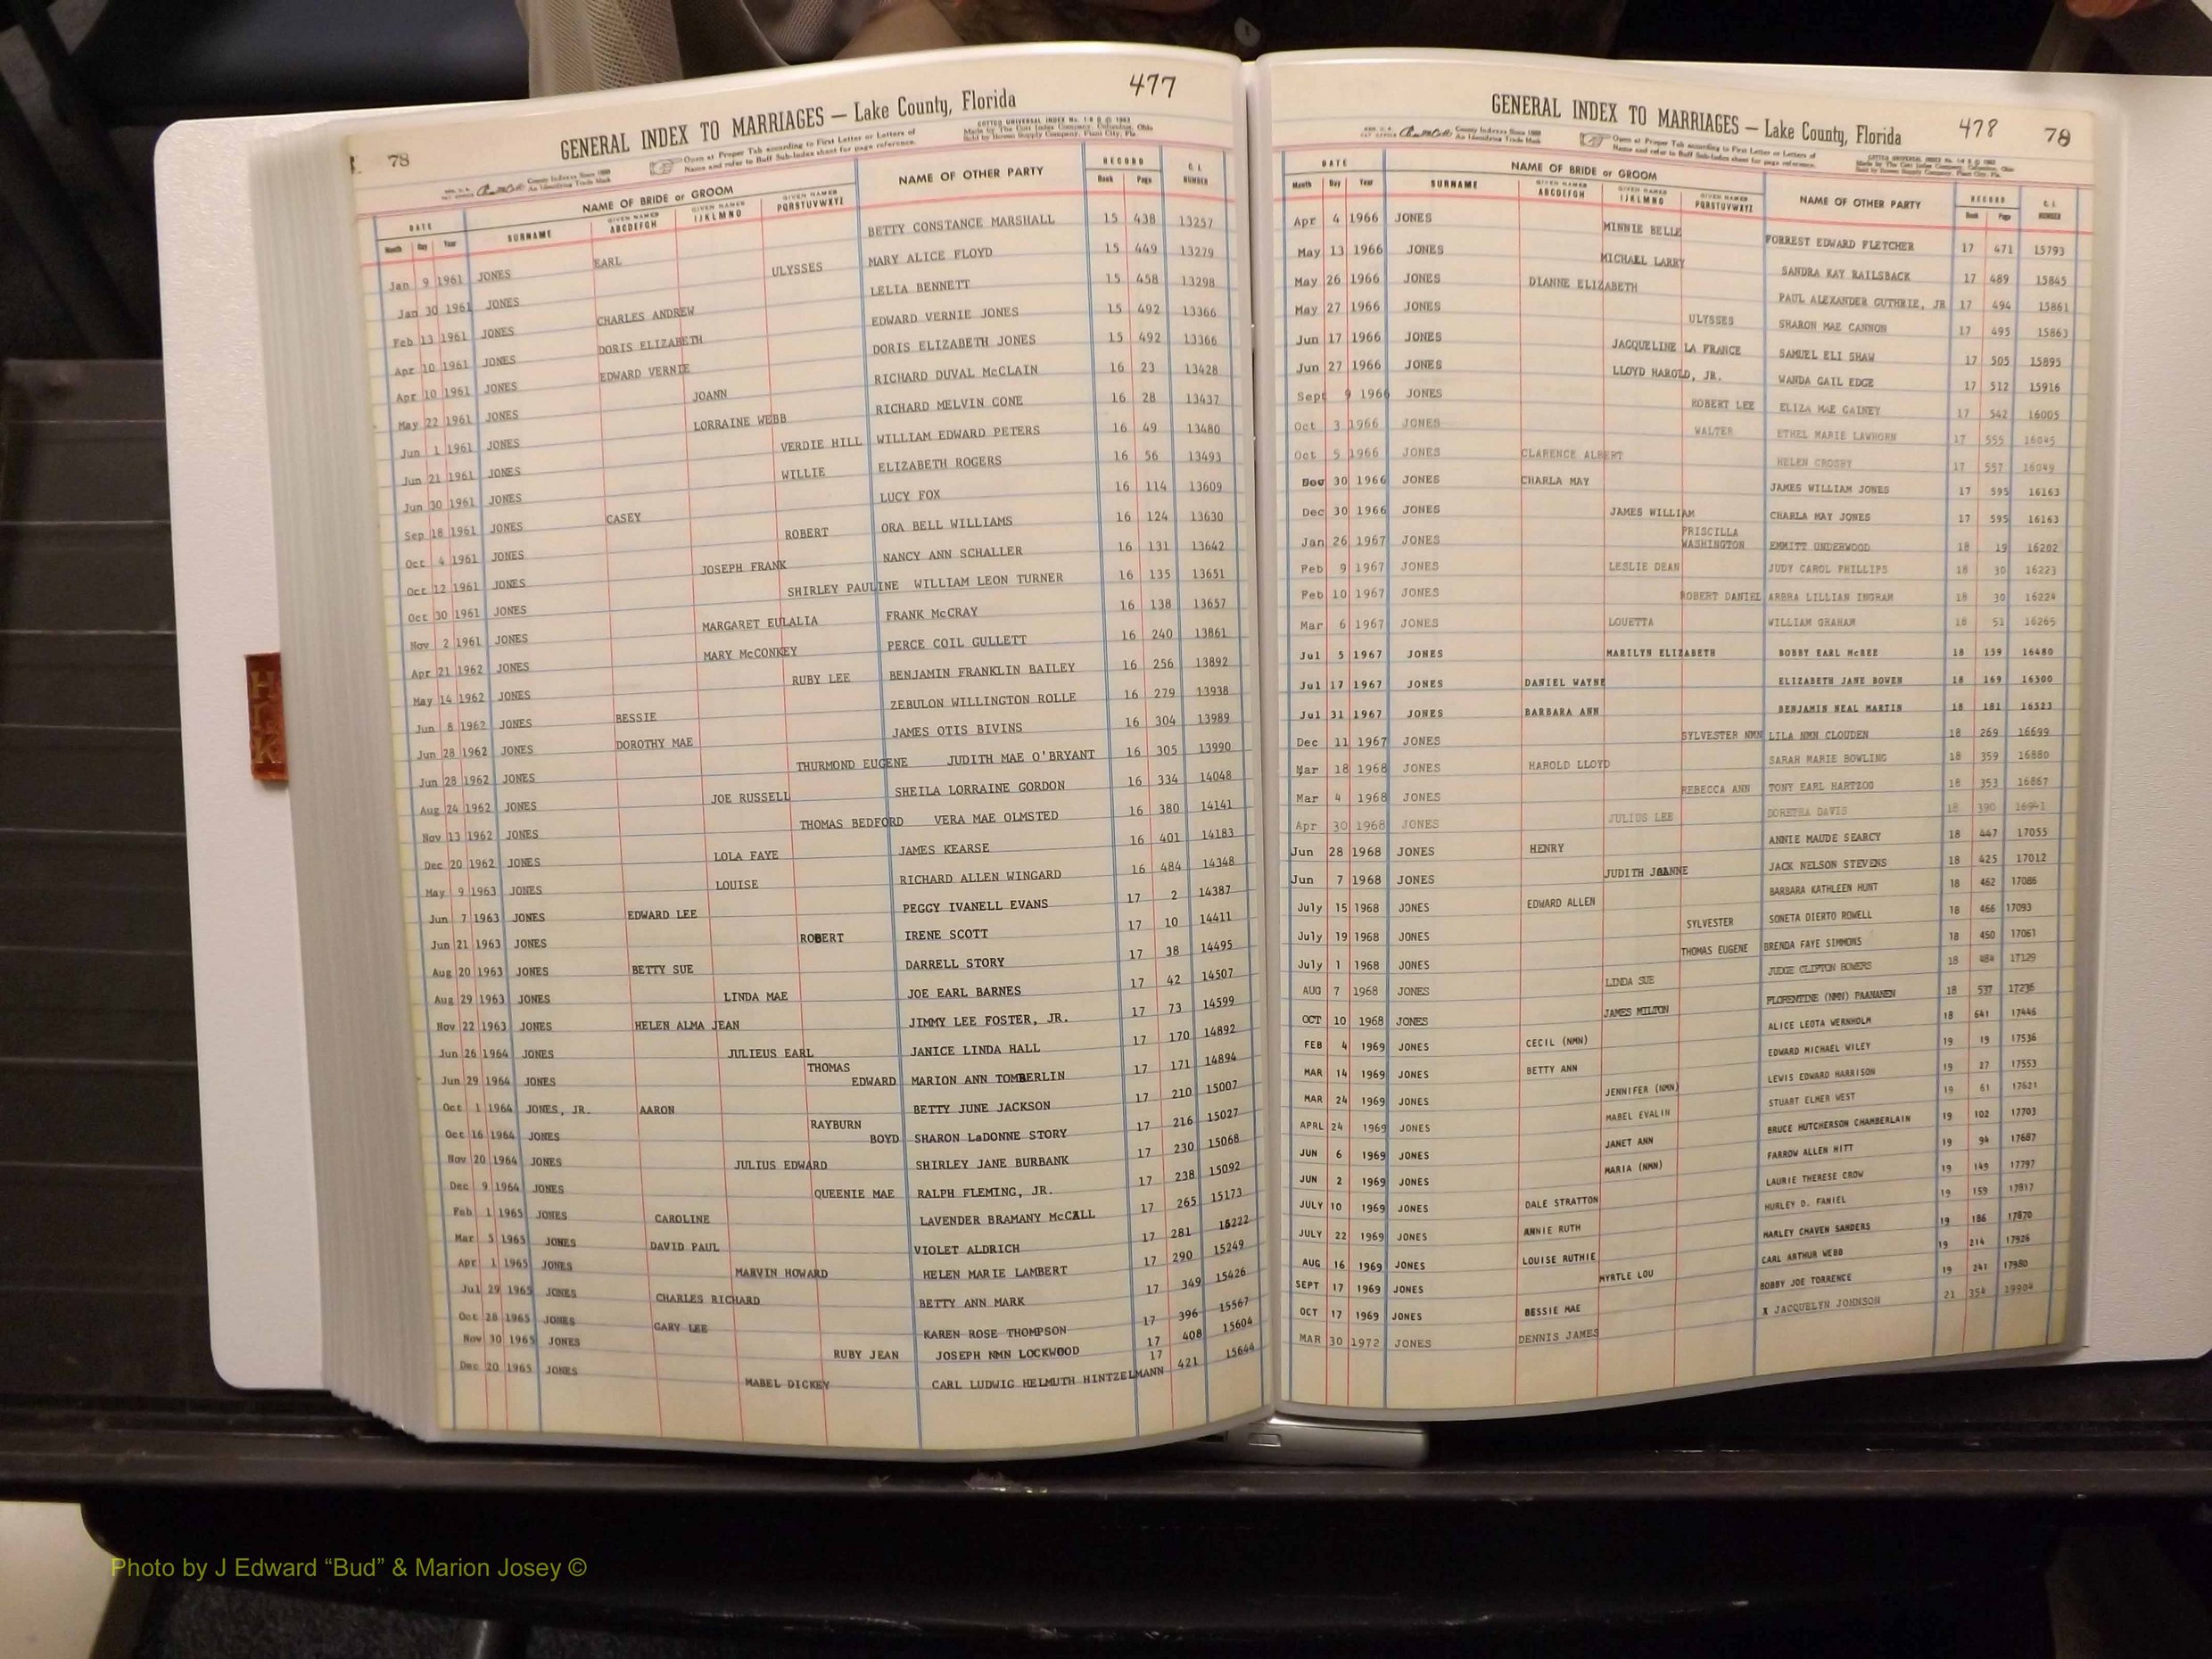 477
78
GENERAL INDEX TO MARRIAGES — Lake County, Florida
County Indexes Since 1888
An Identifying Trade Mark
Open at Proper Tab according to First Letter or Letters of
Name and refer to Buff Sub-Index sheet for page reference.
COTTCO UNIVERSAL INDEX
Made by The Cott Index Company, Columbus, Ohio
DATE NAME OF BRIDE or GROOM NAME OF OTHER PARTY RECORD C. I.
Month Day Year SURNAME GIVEN NAMES ABCDEFGH GIVEN NAMES IJKLMNO GIVEN NAMES PQRSTUVWXYZ Book Page NUMBER
Jan 9 1961 JONES EARL BETTY CONSTANCE MARSHALL 15 438 13257
Jan 30 1961 JONES ULYSSES MARY ALICE FLOYD 15 449 13279
Feb 13 1961 JONES CHARLES ANDREW LELIA BENNETT 15 458 13298
Apr 10 1961 JONES DORIS ELIZABETH EDWARD VERNIE JONES 15 492 13366
Apr 10 1961 JONES EDWARD VERNIE DORIS ELIZABETH JONES 15 492 13366
May 22 1961 JONES JOANN RICHARD DUVAL McCLAIN 16 23 13428
Jun 1 1961 JONES LORRAINE WEBB RICHARD MELVIN CONE 16 28 13437
Jun 21 1961 JONES VERDIE HILL WILLIAM EDWARD PETERS 16 49 13480
Jun 30 1961 JONES WILLIE ELIZABETH ROGERS 16 56 13493
Sep 18 1961 JONES CASEY LUCY FOX 16 114 13609
Oct 4 1961 JONES ROBERT ORA BELL WILLIAMS 16 124 13630
Oct 12 1961 JONES JOSEPH FRANK NANCY ANN SCHALLER 16 131 13642
Oct 30 1961 JONES SHIRLEY PAULINE WILLIAM LEON TURNER 16 135 13651
Nov 2 1961 JONES MARGARET EULALIA FRANK McCRAY 16 138 13657
Apr 21 1962 JONES MARY McCONKEY PERCE COIL GULLETT 16 240 13861
May 14 1962 JONES RUBY LEE BENJAMIN FRANKLIN BAILEY 16 256 13892
Jun 8 1962 JONES BESSIE ZEBULON WILLINGTON ROLLE 16 279 13938
Jun 28 1962 JONES DOROTHY MAE JAMES OTIS BIVINS 16 304 13989
Jun 28 1962 JONES THURMOND EUGENE JUDITH MAE O'BRYANT 16 305 13990
Aug 24 1962 JONES JOE RUSSELL SHEILA LORRAINE GORDON 16 334 14048
Nov 13 1962 JONES THOMAS BEDFORD VERA MAE OLMSTED 16 380 14141
Dec 20 1962 JONES LOLA FAYE JAMES KEARSE 16 401 14183
May 9 1963 JONES LOUISE RICHARD ALLEN WINGARD 16 484 14348
Jun 7 1963 JONES EDWARD LEE PEGGY IVANELL EVANS 17 2 14387
Jun 21 1963 JONES ROBERT IRENE SCOTT 17 10 14411
Aug 20 1963 JONES BETTY SUE DARRELL STORY 17 38 14495
Aug 29 1963 JONES LINDA MAE JOE EARL BARNES 17 42 14507
Nov 22 1963 JONES HELEN ALMA JEAN JIMMY LEE FOSTER, JR. 17 73 14599
Jun 26 1964 JONES JULIEUS EARL JANICE LINDA HALL 17 170 14892
Jun 29 1964 JONES THOMAS EDWARD MARION ANN TOMBERLIN 17 171 14894
Oct 1 1964 JONES, JR. AARON BETTY JUNE JACKSON 17 210 15007
Oct 16 1964 JONES RAYBURN BOYD SHARON LaDONNE STORY 17 216 15027
Nov 20 1964 JONES JULIUS EDWARD SHIRLEY JANE BURBANK 17 230 15068
Dec 9 1964 JONES QUEENIE MAE RALPH FLEMING, JR. 17 238 15092
Feb 1 1965 JONES CAROLINE LAVENDER BRAMANY McCALL 17 265 15173
Mar 5 1965 JONES DAVID PAUL VIOLET ALDRICH 17 281 15222
Apr 1 1965 JONES MARVIN HOWARD HELEN MARIE LAMBERT 17 290 15249
Jul 29 1965 JONES CHARLES RICHARD BETTY ANN MARK 17 349 15426
Oct 28 1965 JONES GARY LEE KAREN ROSE THOMPSON 17 396 15567
Nov 30 1965 JONES RUBY JEAN JOSEPH NMN LOCKWOOD 17 408 15604
Dec 20 1965 JONES MABEL DICKEY CARL LUDWIG HELMUTH HINTZELMANN 17 421 15644
GENERAL INDEX TO MARRIAGES — Lake County, Florida
478
78
County Indexes Since 1888
An Identifying Trade Mark
Open at Proper Tab according to First Letter or Letters of
Name and refer to Buff Sub-Index sheet for page reference.
DATE NAME OF BRIDE or GROOM NAME OF OTHER PARTY RECORD C. I.
Month Day Year SURNAME GIVEN NAMES ABCDEFGH GIVEN NAMES IJKLMNO GIVEN NAMES PQRSTUVWXYZ Book Page NUMBER
Apr 4 1966 JONES MINNIE BELLE FORREST EDWARD FLETCHER 17 471 15793
May 13 1966 JONES MICHAEL LARRY SANDRA KAY RAILSBACK 17 489 15845
May 26 1966 JONES DIANNE ELIZABETH PAUL ALEXANDER GUTHRIE, JR 17 494 15861
May 27 1966 JONES ULYSSES SHARON MAE CANNON 17 495 15863
Jun 17 1966 JONES JACQUELINE LA FRANCE SAMUEL ELI SHAW 17 505 15895
Jun 27 1966 JONES LLOYD HAROLD, JR. WANDA GAIL EDGE 17 512 15916
Sept 9 1966 JONES ROBERT LEE ELIZA MAE GAINEY 17 542 16005
Oct 3 1966 JONES WALTER ETHEL MARIE LAWHORN 17 555 16045
Oct 5 1966 JONES CLARENCE ALBERT HELEN CROSBY 17 557 16049
Dec 30 1966 JONES CHARLA MAY JAMES WILLIAM JONES 17 595 16163
Dec 30 1966 JONES JAMES WILLIAM CHARLA MAY JONES 17 595 16163
Jan 26 1967 JONES PRISCILLA WASHINGTON EMMITT UNDERWOOD 18 19 16202
Feb 9 1967 JONES LESLIE DEAN JUDY CAROL PHILLIPS 18 30 16223
Feb 10 1967 JONES ROBERT DANIEL ARBRA LILLIAN INGRAM 18 30 16224
Mar 6 1967 JONES LOUETTA WILLIAM GRAHAM 18 51 16265
Jul 5 1967 JONES MARILYN ELIZABETH BOBBY EARL McBEE 18 159 16480
Jul 17 1967 JONES DANIEL WAYNE ELIZABETH JANE BOWEN 18 169 16500
Jul 31 1967 JONES BARBARA ANN BENJAMIN NEAL MARTIN 18 181 16523
Dec 11 1967 JONES SYLVESTER NMN LILA NMN CLOUDEN 18 269 16699
Mar 18 1968 JONES HAROLD LLOYD SARAH MARIE BOWLING 18 359 16880
Mar 4 1968 JONES REBECCA ANN TONY EARL HARTZOG 18 353 16867
Apr 30 1968 JONES JULIUS LEE DORETHA DAVIS 18 390 16941
Jun 28 1968 JONES HENRY ANNIE MAUDE SEARCY 18 447 17055
Jun 7 1968 JONES JUDITH JOANNE JACK NELSON STEVENS 18 425 17012
July 15 1968 JONES EDWARD ALLEN BARBARA KATHLEEN HUNT 18 462 17086
July 19 1968 JONES SYLVESTER SONETA DIERTO ROWELL 18 466 17093
July 1 1968 JONES THOMAS EUGENE BRENDA FAYE SIMMONS 18 450 17061
AUG 7 1968 JONES LINDA SUE JUDGE CLIFTON BOWERS 18 484 17129
OCT 10 1968 JONES JAMES MILTON FLORENTINE (NMN) PAANANEN 18 537 17236
FEB 4 1969 JONES CECIL (NMN) ALICE LEOTA WERNHOLM 18 641 17446
MAR 14 1969 JONES BETTY ANN EDWARD MICHAEL WILEY 19 19 17536
MAR 24 1969 JONES JENNIFER (NMN) LEWIS EDWARD HARRISON 19 27 17553
APRL 24 1969 JONES MABEL EVALIN STUART ELMER WEST 19 61 17621
JUN 6 1969 JONES JANET ANN BRUCE HUTCHERSON CHAMBERLAIN 19 102 17703
JUN 2 1969 JONES MARIA (NMN) FARROW ALLEN HITT 19 94 17687
JULY 10 1969 JONES DALE STRATTON LAURIE THERESE CROW 19 149 17797
JULY 22 1969 JONES ANNIE RUTH HURLEY D. FANIEL 19 159 17817
AUG 16 1969 JONES LOUISE RUTHIE HARLEY CHAVEN SANDERS 19 186 17870
SEPT 17 1969 JONES MYRTLE LOU CARL ARTHUR WEBB 19 214 17926
OCT 17 1969 JONES BESSIE MAE BOBBY JOE TORRENCE 19 241 17980
MAR 30 1972 JONES DENNIS JAMES X JACQUELYN JOHNSON 21 354 19904
H
K
Photo by J Edward “Bud” & Marion Josey ©